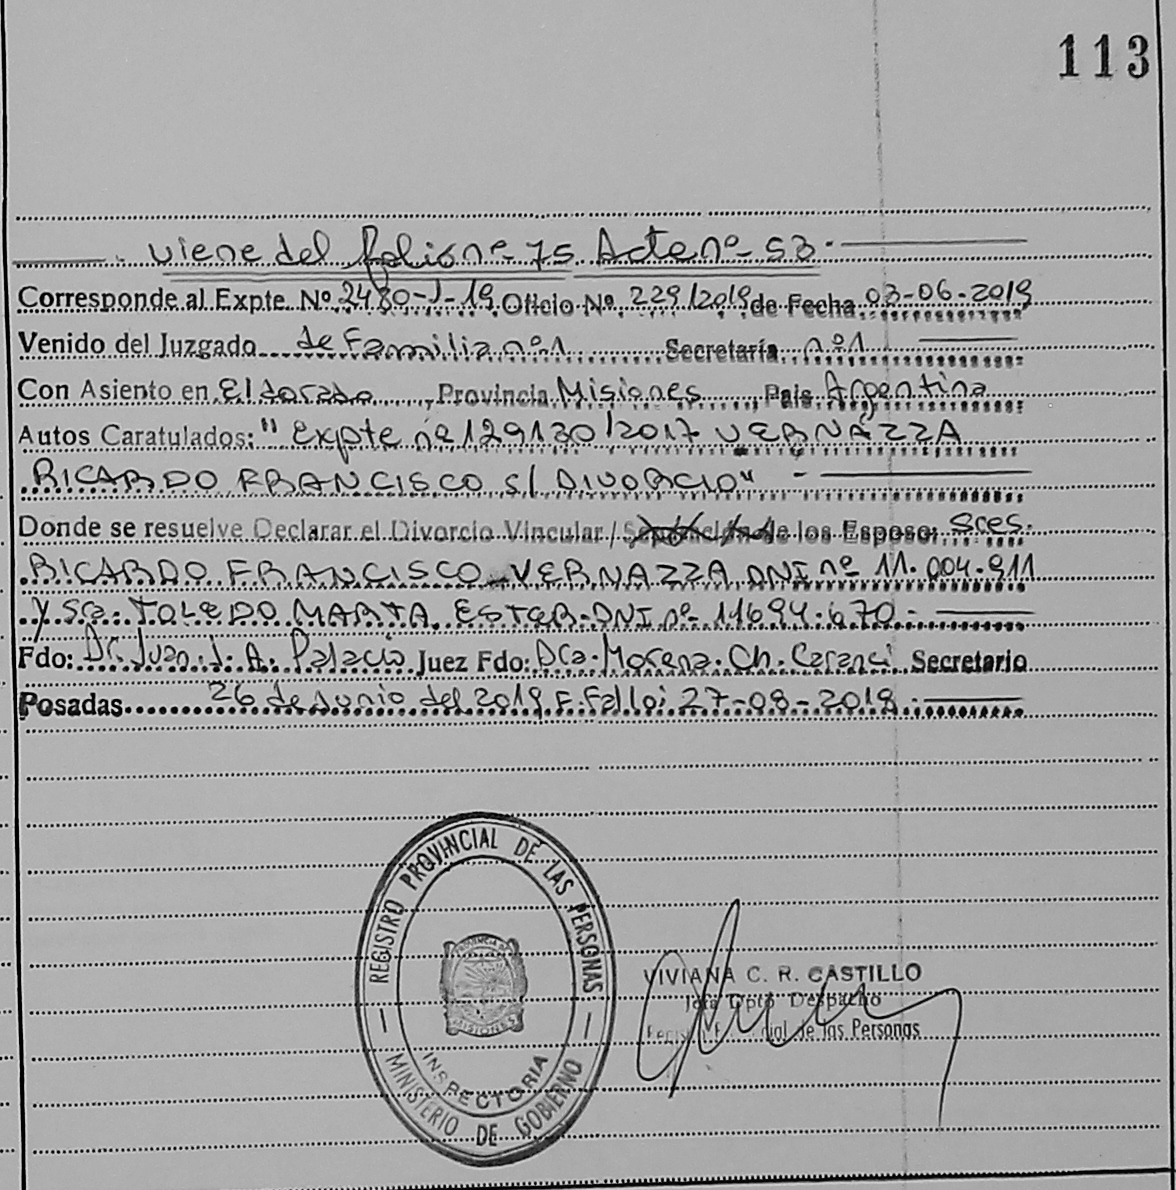 113
viene del folio nº 75 Acta nº 53.
Corresponde al Expte. Nº 2480-J-19 Oficio Nº 229/2019 de Fecha 03-06-2019
Venido del Juzgado de Familia nº1 Secretaría nº1
Con Asiento en Eldorado Provincia Misiones País Argentina
Autos Caratulados: "Expte nº 129130/2017 VERNAZZA
RICARDO FRANCISCO S/ DIVORCIO"
Donde se resuelve Declarar el Divorcio Vincular / de los Esposo: Sres.
RICARDO FRANCISCO VERNAZZA DNI nº 11.004.911
y Sra. TOLEDO MARTA ESTER-DNI nº 11694.670.-
Fdo: Dr. Juan. J. A. Palacio Juez Fdo: Dra. Morena. Ch. Secretario
Posadas 26 de Junio del 2019 F. Fallo: 27-08-2018.
REGISTRO PROVINCIAL DE LAS PERSONAS
PROVINCIA DE
MISIONES
INSPECTORIA
MINISTERIO DE GOBIERNO
VIVIANA C. R. CASTILLO
Jefa Dpto Despacho
Registro Provincial de las Personas